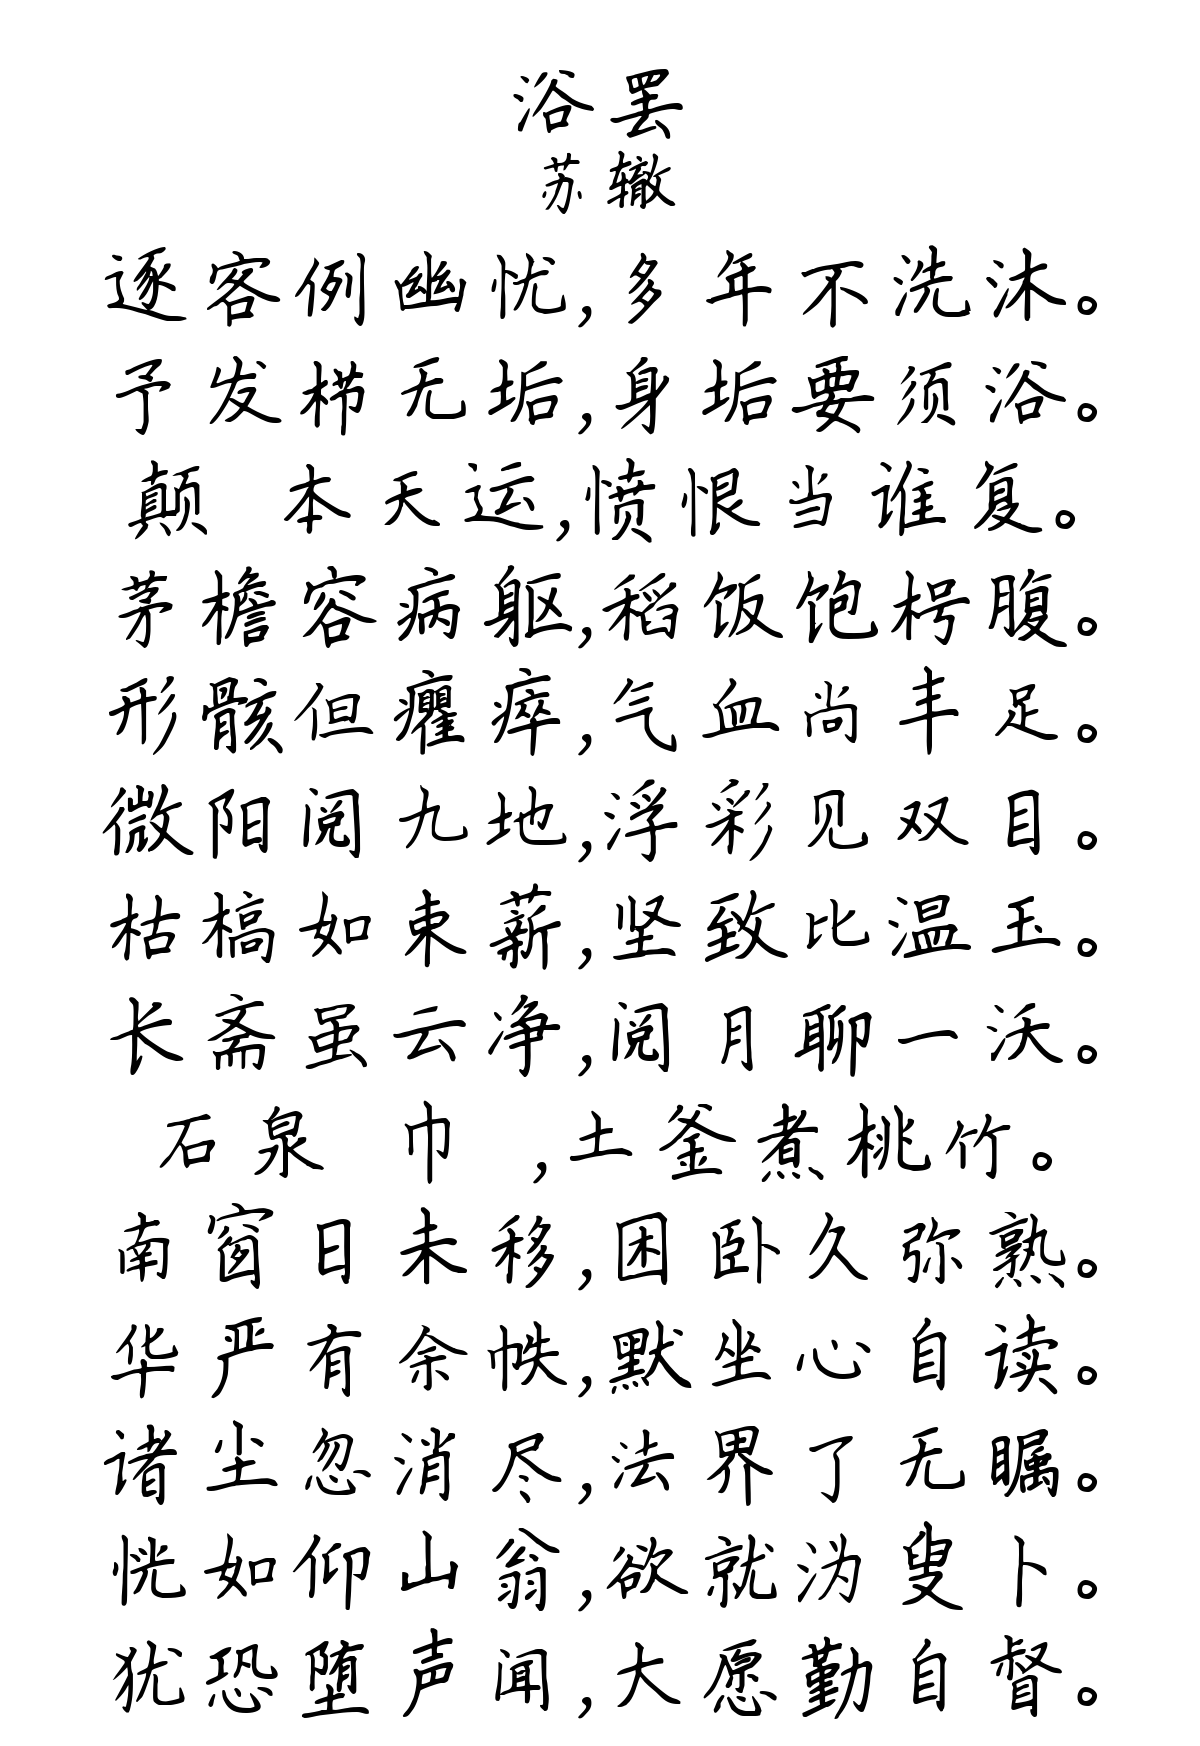 浴罢
苏辙
逐客例幽忧,多年不洗沐。
予发栉无垢,身垢要须浴。
颠 本天运,愤恨当谁复。
茅檐容病躯,稻饭饱枵腹。
形骸但癯瘁,气血尚丰足。
微阳阅九地,浮彩见双目。
枯槁如束薪,坚致比温玉。
长斋虽云净,阅月聊一沃。
石泉 巾 ,土釜煮桃竹。
南窗日未移,困卧久弥熟。
华严有余帙,默坐心自读。
诸尘忽消尽,法界了无瞩。
恍如仰山翁,欲就沩叟卜。
犹恐堕声闻,大愿勤自督。